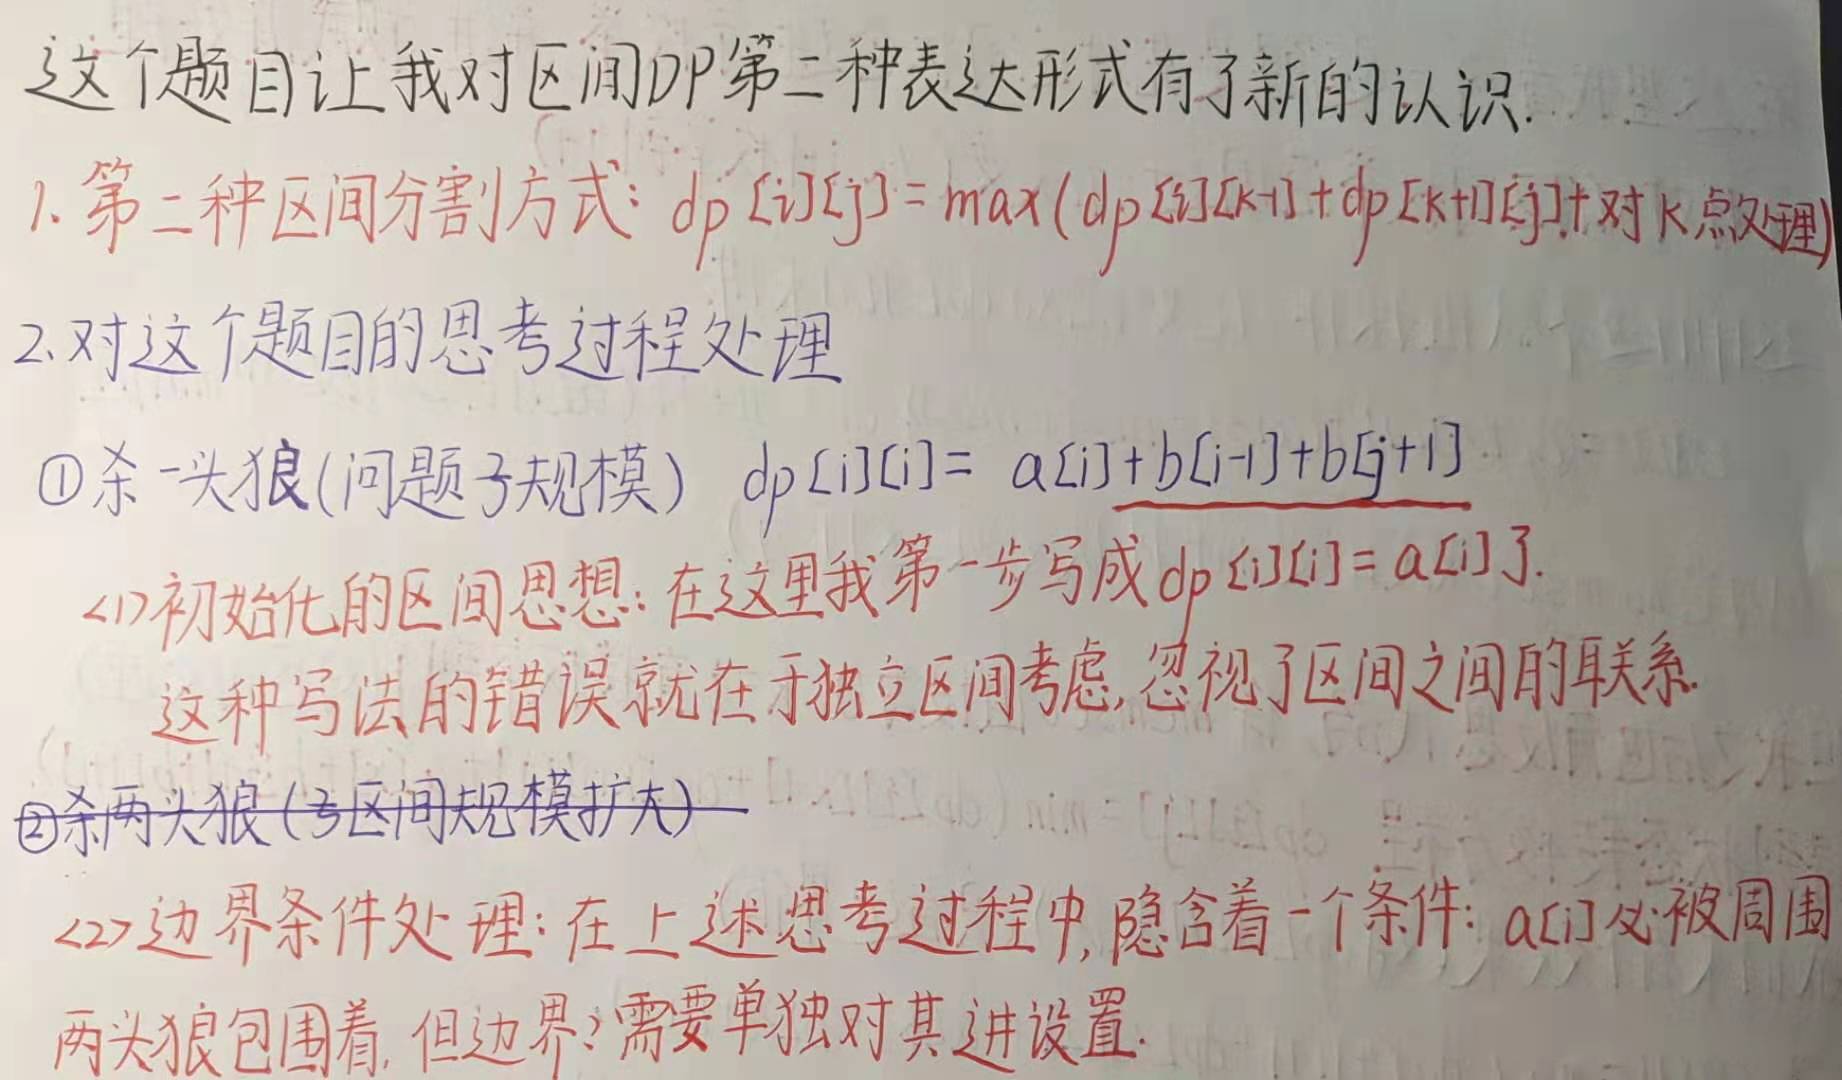 这个题目让我对区间DP第二种表达形式有了新的认识.
1. 第二种区间分割方式: dp[i][j]=max(dp[i][k-1]+dp[k+1][j]+对K点处理)
2. 对这个题目的思考过程处理
①杀一头狼(问题子规模) dp[i][i]= a[i]+b[i-1]+b[j+1]
<1>初始化的区间思想: 在这里我第一步写成dp[i][i]=a[i]了.
这种写法的错误就在于独立区间考虑,忽视了区间之间的联系.
②杀两头狼(子区间规模扩大)
<2>边界条件处理: 在上述思考过程中,隐含着一个条件: a[i]必被周围
两头狼包围着,但边界?需要单独对其进设置.